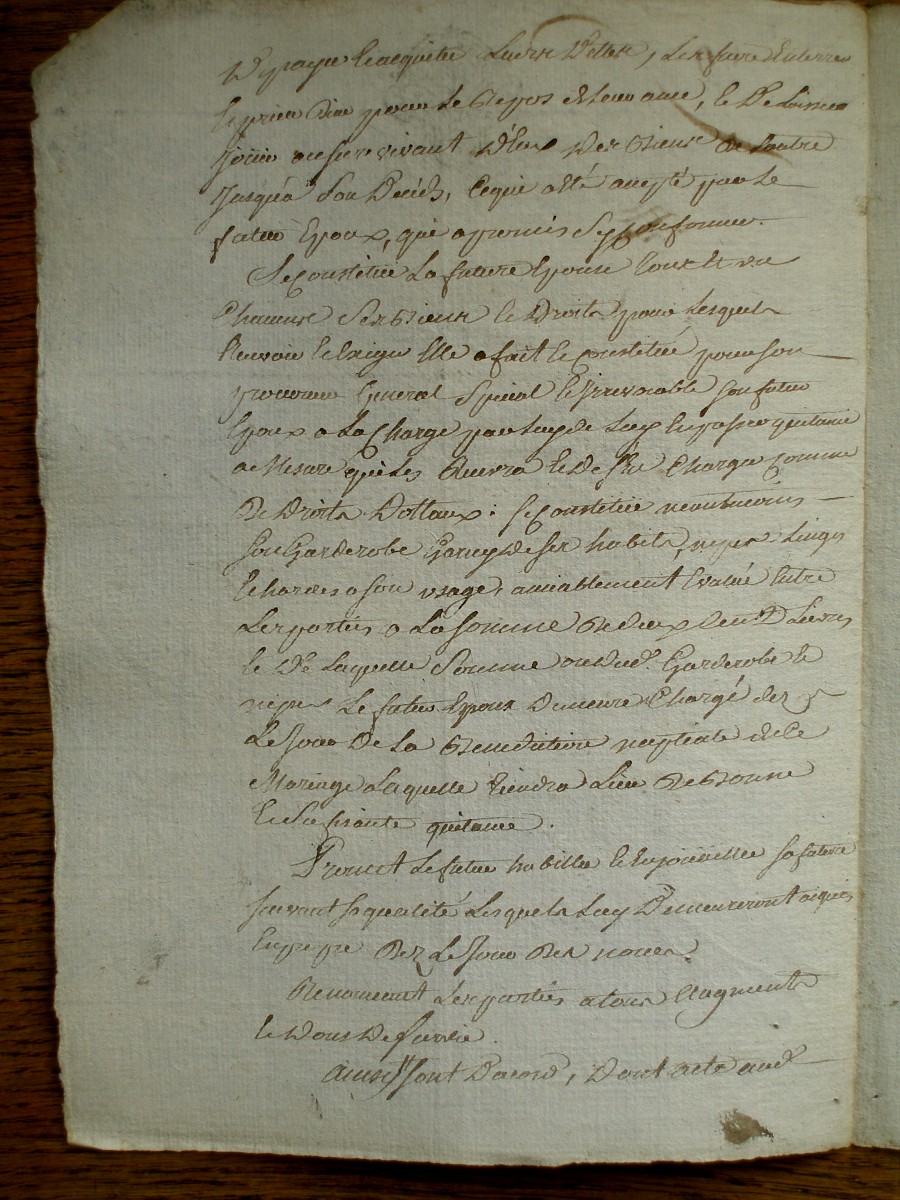 payer & acquitter Leurs Dettes, Les faire Enterrer
& prier Dieu pour Le Repos de Leur ame, & De Laisser
Jouir au survivant D'Eux Des Biens de Lautre
Jusqua Son Decés, Ce qui a été accepté par Le
futur Epoux, qui a promis Sy Conformer.
Se Constitue La future Epouse tous Et un
Chacuns Ses Biens & Droits pour Lesquels
Recevoir & Exiger Elle a fait & Constitué pour Son
procureur General Special & Irrevocable Son futur
Epoux a La Charge par Luy de Luy En passer quitance
a Mesure qu'il Les Recevra & De S'En Charger Comme
De Droits Dottaux : Se Constitue neantmoins
Son Garderobe Garny de Ses habits, nipes Linges
& hardes a Son usage, amiablement Evalué Entre
Les parties a La Somme de deux Cents Livres
& De Laquelle Somme ou dud. Garderobe &
nipes Le futur Epoux Demeure Chargé dez
Le Jour De La Benediction nuptiale dud.
Mariage Laquelle Tiendra Lieu de Bonne
& Suffisante quitance.
Promet Le futur habiller & Enjoueller Sa future
Suivant Sa qualité Lesquels Luy Demeureront acquis
En propre Dez Le Jour Des noces.
Renoncent Les parties a tous Augments
& Dons De Survie.
ainsy Sont Dacord, Dont acte aud.